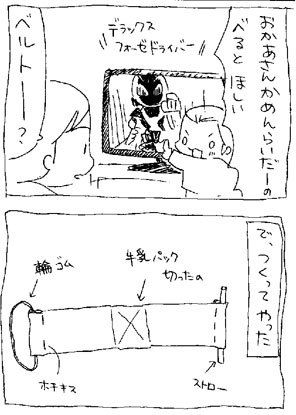 おかあさんかめんらいだーの
べると ほしい
デラックス
フォーゼドライバー
ベルトー？
で、つくってやった
牛乳パック
切ったの
輪ゴム
ホチキス
ストロー